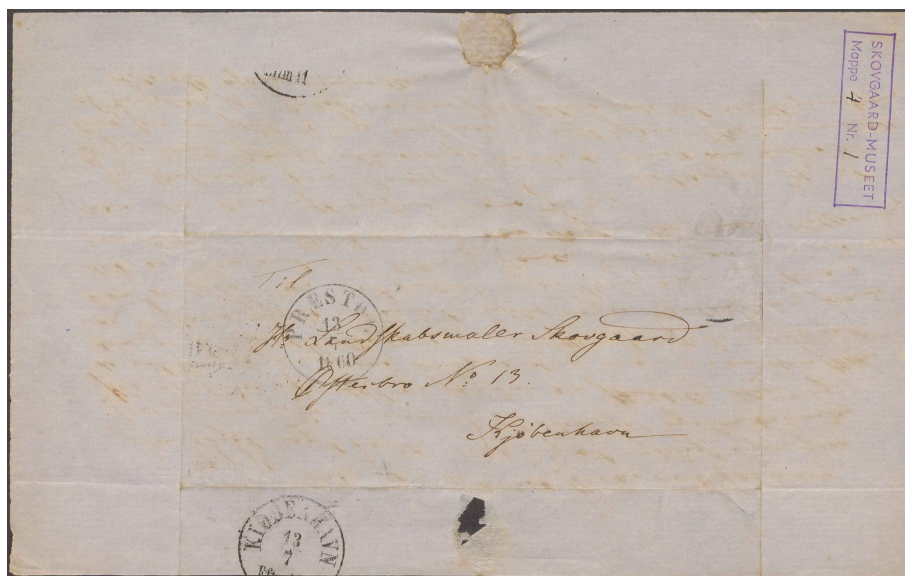 SKOVGAARD-MUSEET
Mappe 4 Nr. 1
Til
PRÆSTØ
13
1860
Hr Landskabsmaler Skovgaard
Østerbro No 13.
Kjöbenhavn
KIØBENHAVN
13
7